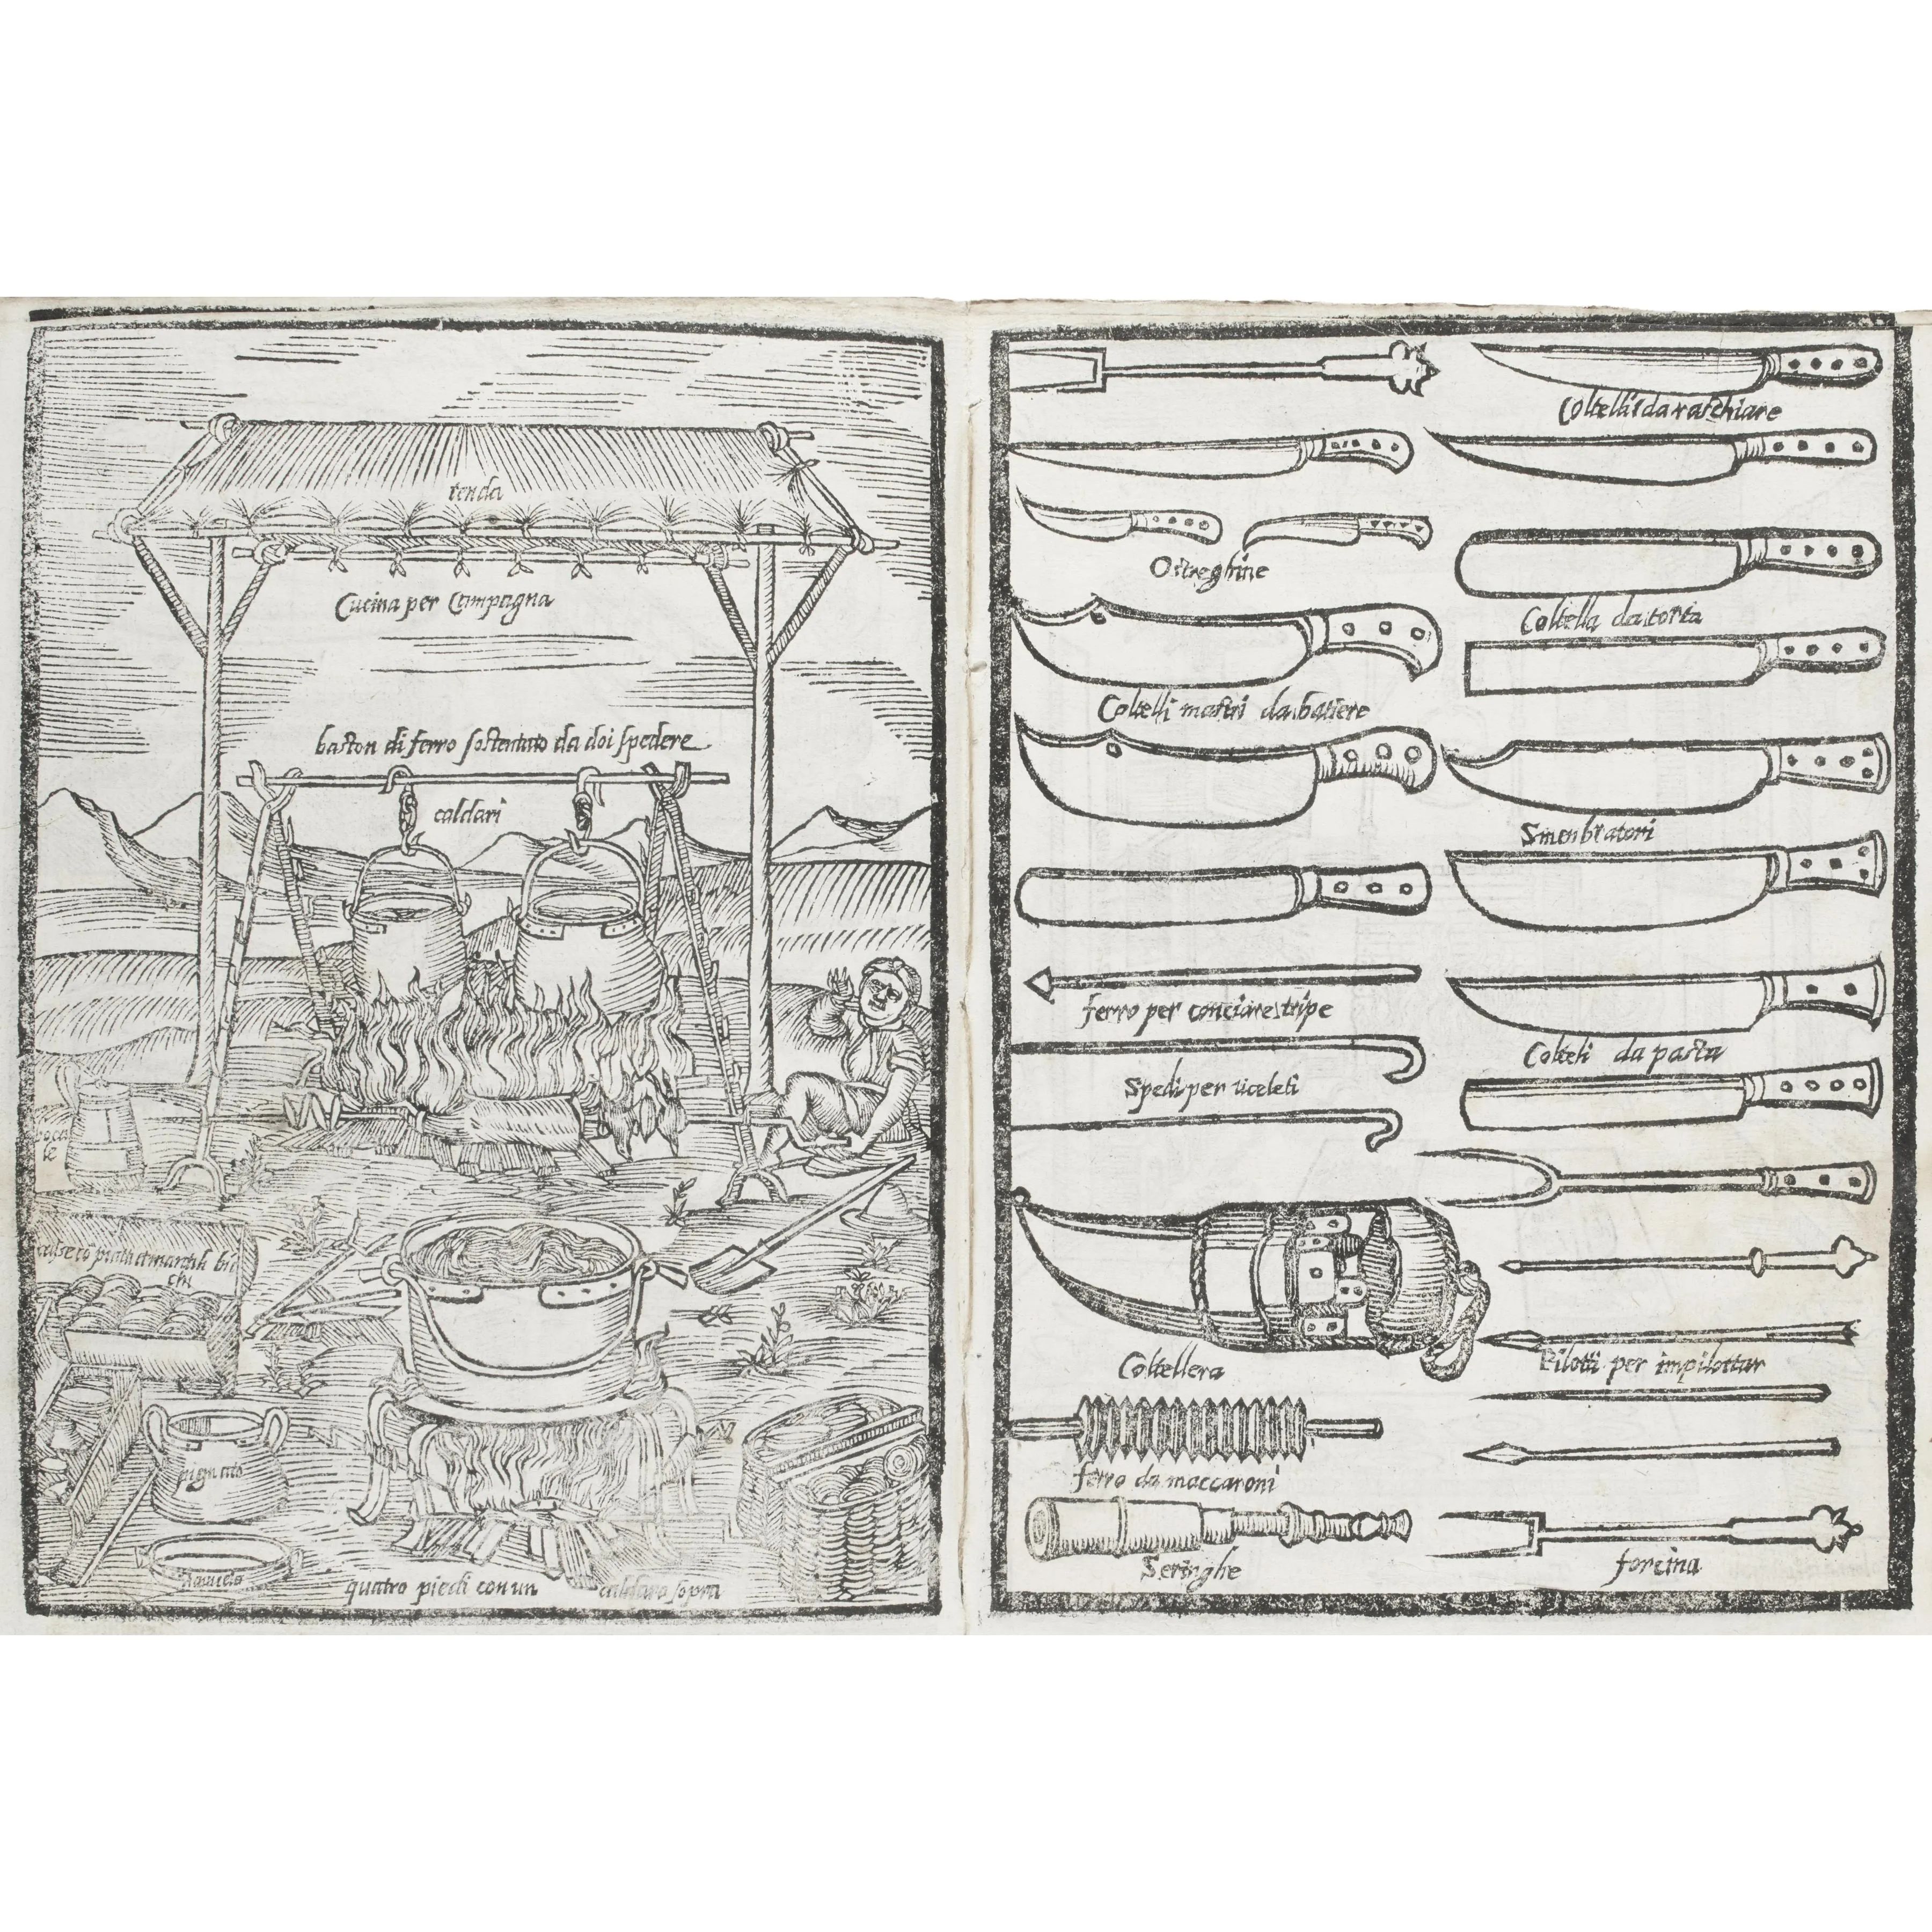 tenda
Cucina per Campagna
baston di ferro sostentato da doi spedere
caldari
boca
le
casse cō piatti
chi
pignato
quatro piedi con un caldaro sopra
Coltelli da raschiare
Ostreghine
Coltella da torta
Coltelli mastri da batiere
Smenbratori
ferro per conciare stripe
Colteli da pasta
Spedi per uceleti
Coltellera
Pilotti per impilottar
ferro da maccaroni
Seringhe
forcina